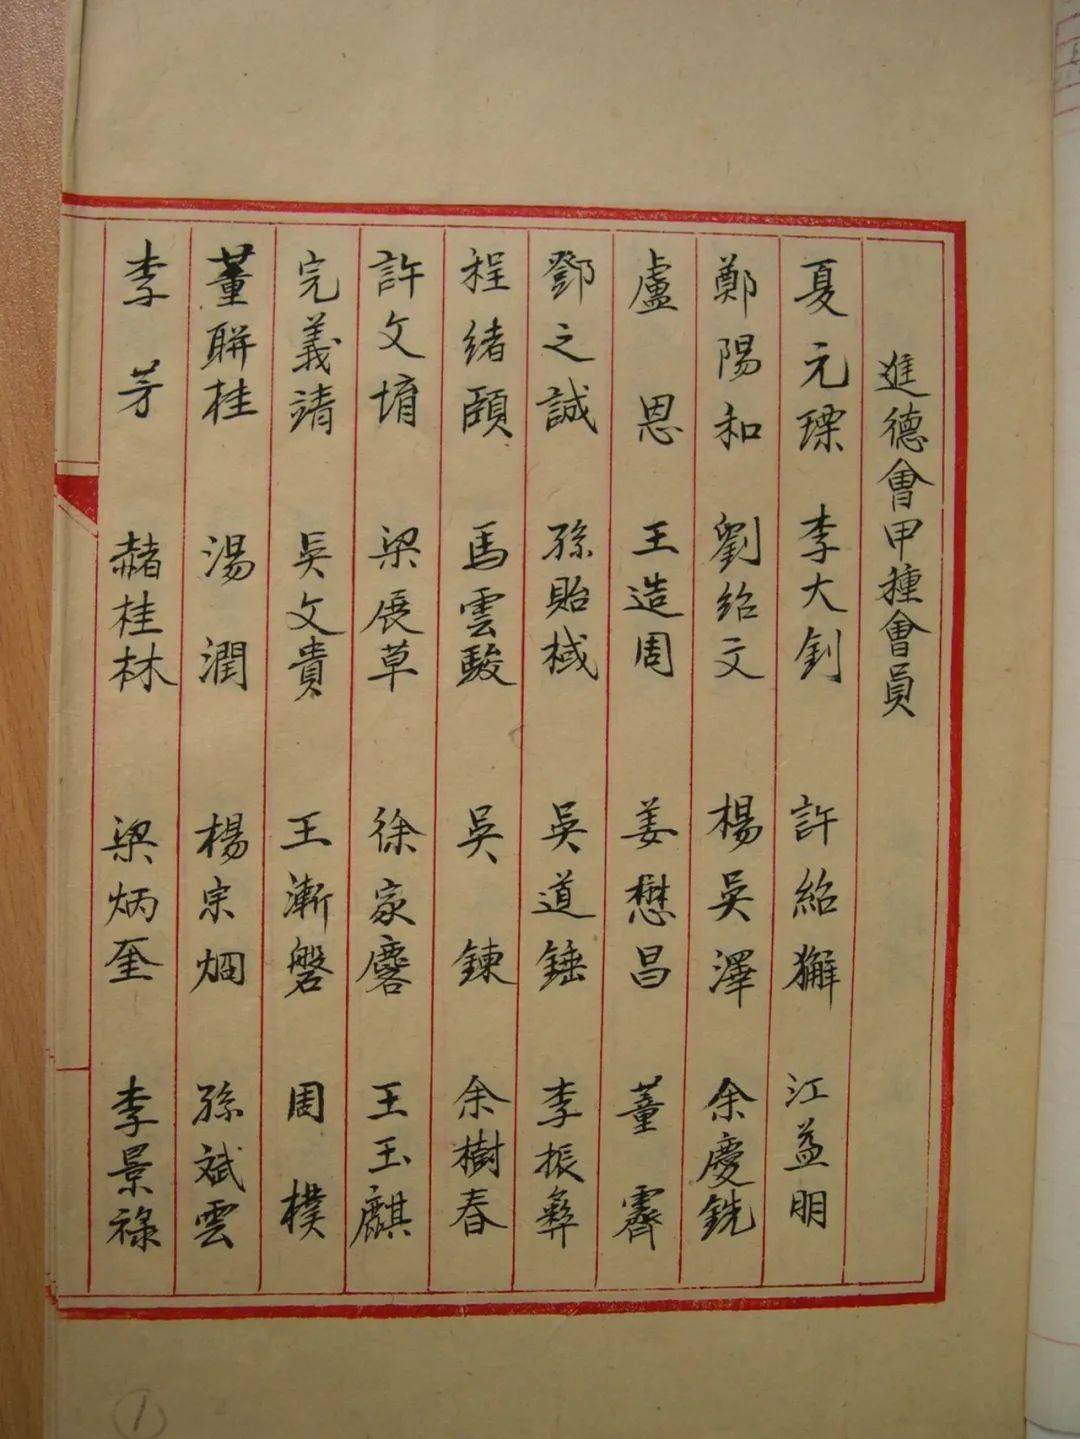 進德會甲種會員
夏元瑮 李大釗 許紹獬 江益明
鄭陽和 劉紹文 楊吳澤 余慶銑
盧恩 王造周 姜懋昌 董霽
鄧之誠 孫貽棫 吳道錘 李振彝
程緒頤 馬雲駿 吳鍊 余樹春
許文堉 梁展草 徐家麐 王玉麒
完義靖 吳文貴 王漸磐 周樸
董聯桂 湯潤 楊宗烱 孫斌雲
李芳 赭桂林 梁炳奎 李景祿
1